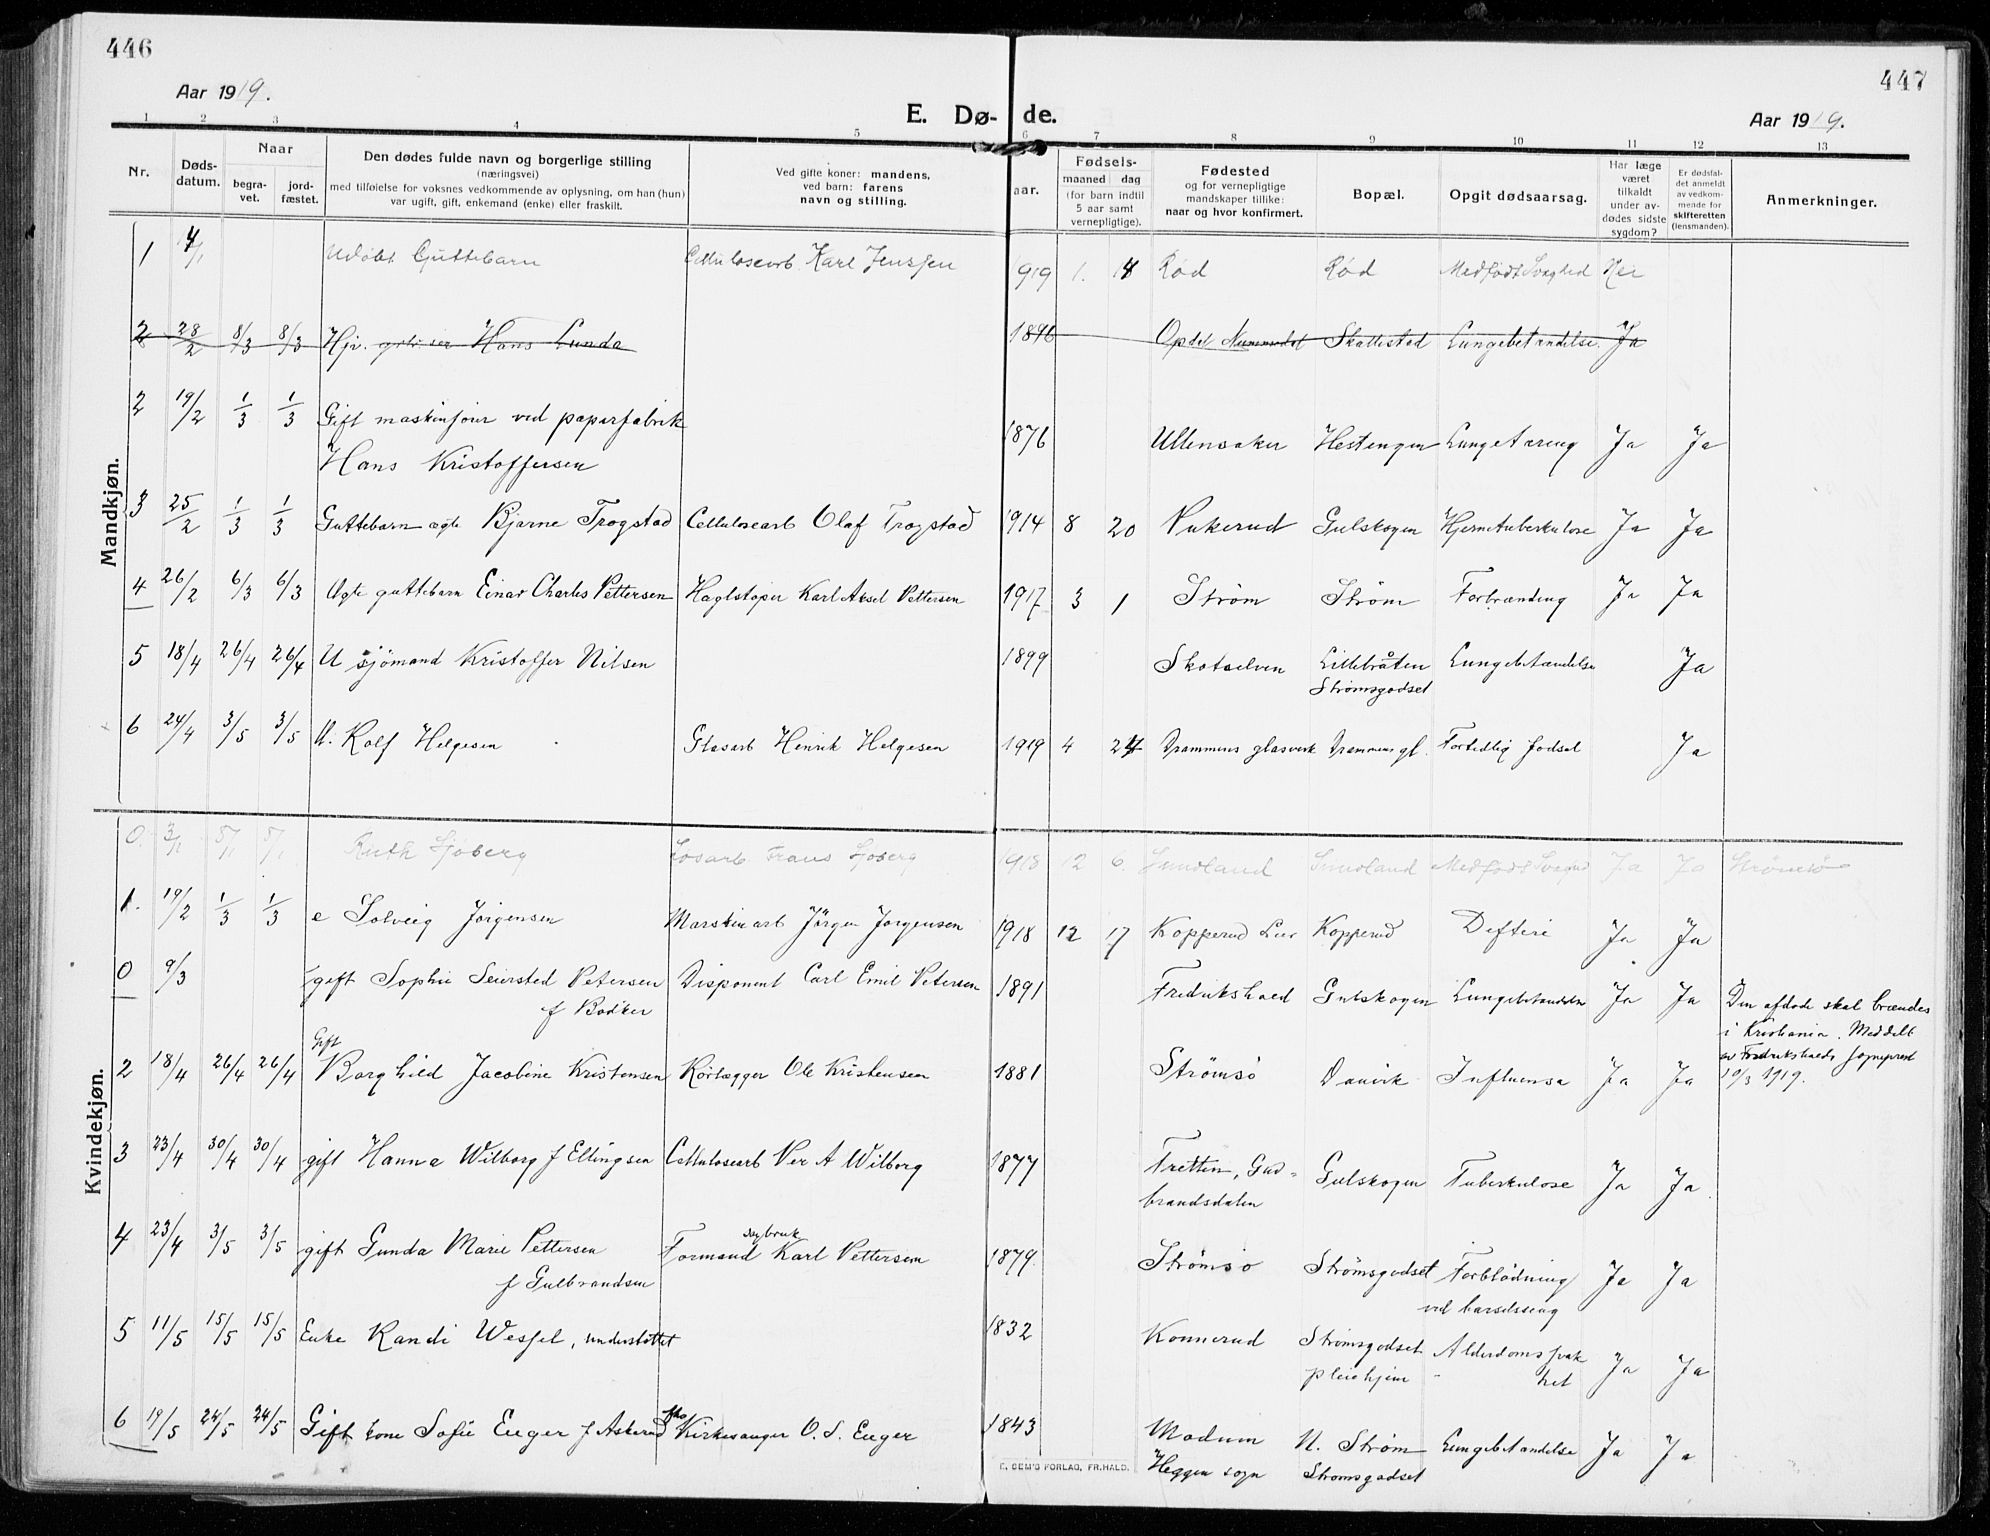 446
447
Aar 1919.
E. Dø- de.
Aar 1919.
1 2 3 4 5 6 7 8 9 10 11 12 13
Nr.
Døds-
datum.
Naar
begra-
vet.
jord-
fæstet.
Den dødes fulde navn og borgerlige stilling
(næringsvei)
med tilføielse for voksnes vedkommende av oplysning, om han (hun)
var ugift, gift, enkemand (enke) eller fraskilt.
Ved gifte koner: mandens,
ved barn: farens
navn og stilling.
aar.
Fødsels-
maaned dag
(for barn indtil
5 aar samt
vernepligtige).
Fødested
og for vernepligtige
mandskaper tillike:
naar og hvor konfirmert.
Bopæl.
Opgit dødsaarsag.
Har læge
været
tilkaldt
under av-
dødes sidste
sygdom?
Er dødsfal-
det anmeldt
av vedkom-
mende for
skifteretten
(lensmanden).
Anmerkninger.
Mandkjøn.
1 4/1 Udøbt Guttebarn Cellulosearb. Karl Jenssen 1919 1. 4 Rød Rød Medfødt Svaghed Nei
2 28/2 8/3 8/3 Hans Lunda 1896 Opdal Numedal Skallestad Lungebetændelse. Ja
2 19/2 1/3 1/3 Gift maskinfører ved papirfabrik
Hans Kristoffersen 1876 Ullensaker Hestengen Lungetæring Ja Ja
3 25/2 1/3 1/3 Guttebarn ægte Bjarne Trogstad Cellulosearb Olaf Trogstad 1914 8 20 Pukerud Gulskogen Hjernetuberkulose Ja Ja
4 26/2 6/3 6/3 Ægte guttebarn Einar Charles Pettersen Haglstøper Karl Aksel Pettersen 1917 3 1 Strøm Strøm Forbrænding Ja Ja
5 18/4 26/4 26/4 U sjömand Kristoffer Nilsen 1899 Skotselven Lillebråten Lungebetændelse Ja
Strømsgodset
6 24/4 3/5 3/5 U. Rolf Helgesen Glasarb Henrik Helgesen 1919 4 24 Drammens glasverk Drammens gl. Fortidlig fødsel Ja
Kvindekjøn.
0. 3/1 5/1 5/1 Ruth Sjøberg Losarb Frans Sjøberg 1918 12 6. Sundland Sundland Medfødt Svaghed Ja Ja Strømsø
1. 19/2 1/3 1/3 e Solveig Jørgensen Marskinarb Jörgen Jorgensen 1918 12 17 Kopperud Lier Kopperud Defteri Ja Ja
0 9/3 gift Sophie Seiersted Petersen Disponent Carl Emil Petersen 1891 Fredrikshald Gulskogen Lungebetændelse Ja Ja Den afdøde skal brændes
f Bödker
i Kristiania. Meddelt
av Fredrikshalds sogneprest
10/3 1919.
Gift
2 18/4 26/4 26/4 Borghild Jacobine Kristensen Rörlægger Ole Kristensen 1881 Strömsö Danvik Influensa Ja Ja
3 23/4 30/4 30/4 gift Hanna Wilborg f Ellingsen Cellulosearb Per A Wilborg 1877 Fretten, Gud-
brandsdalen Gulskogen Tuberkulose Ja Ja
4 23/4 3/5 3/5 gift Gunda Marie Pettersen
f Gulbrandsen
sagbruk
Formand Karl Pettersen 1879. Strømsø Strömsgodset Forblödning
ved barselsseng Ja Ja
5 11/5 15/5 15/5 Enke Randi Wessel, understöttet 1832 Konnerud Strömsgodset
pleiehjem Alderdomssvak
het Ja Ja
6 19/5 24/5 24/5 Gift kone Sofie Enger f Askerud Kirkesanger O. S. Enger 1843 Modum
Heggen sogn N. Strøm
Strømsgodset Lungebetændelse Ja Ja
E. SEM'S FORLAG, FR.HALD.